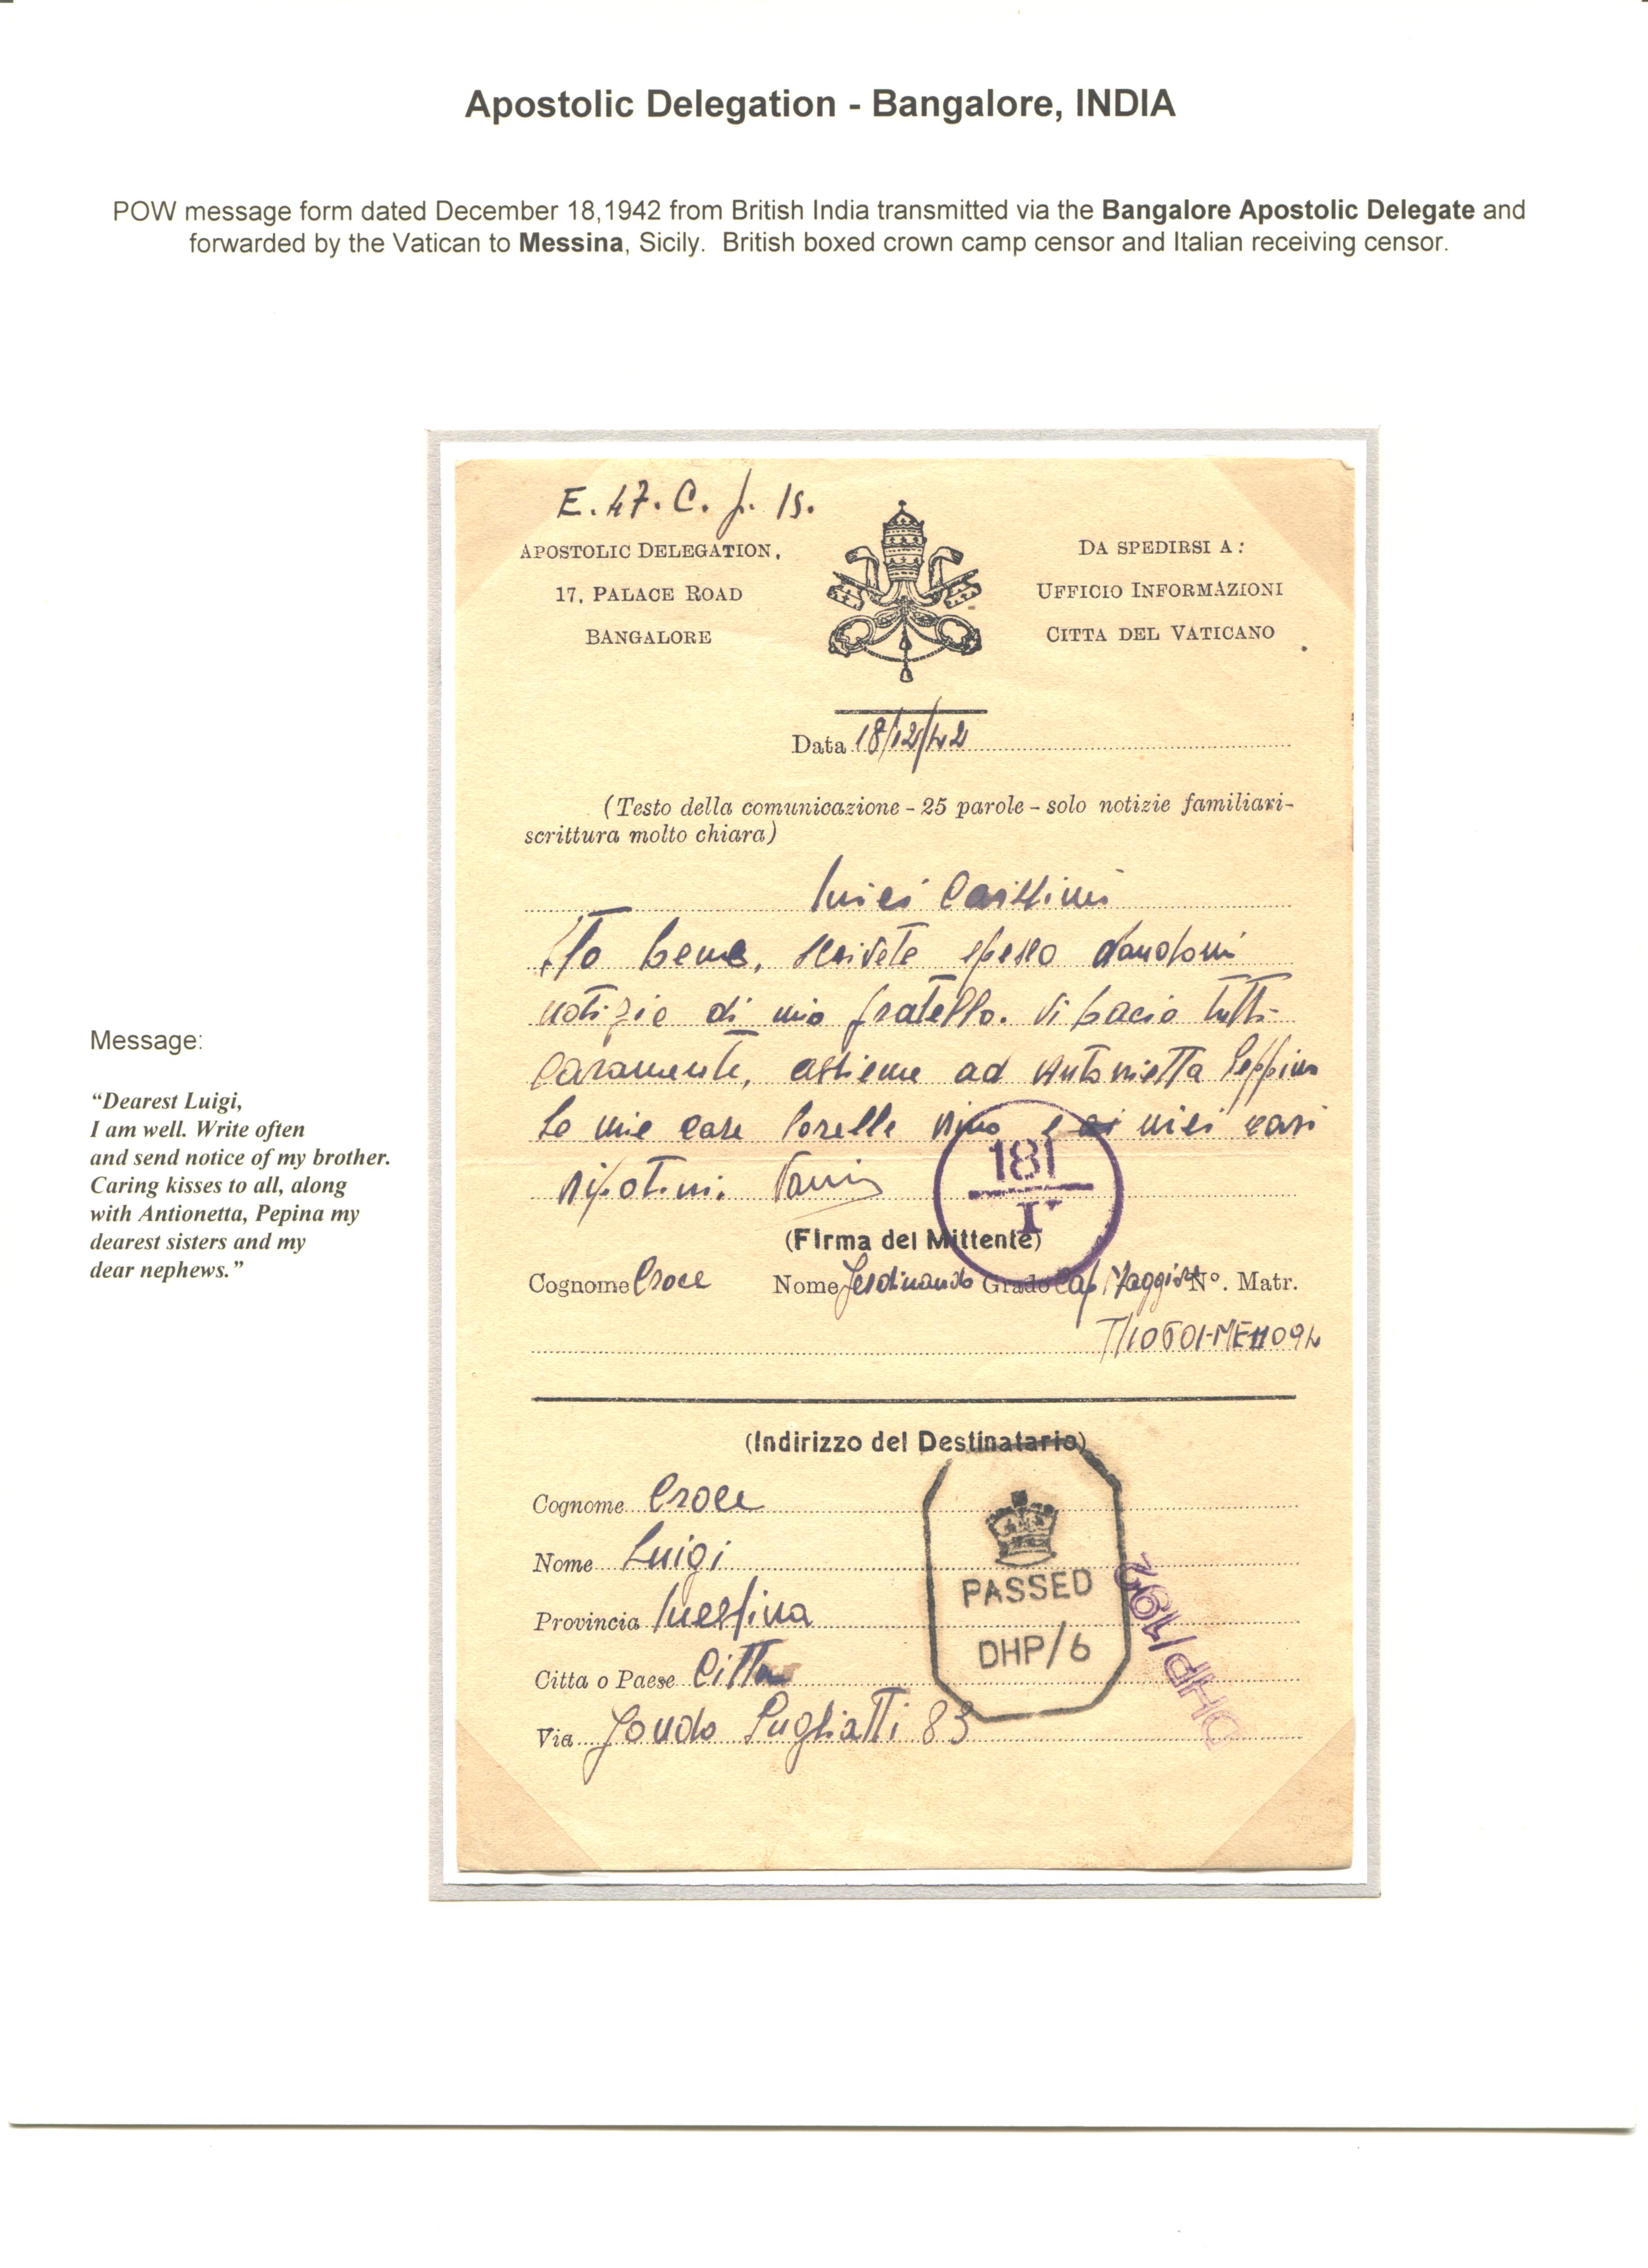 Apostolic Delegation - Bangalore, INDIA
POW message form dated December 18,1942 from British India transmitted via the Bangalore Apostolic Delegate and
forwarded by the Vatican to Messina, Sicily. British boxed crown camp censor and Italian receiving censor.
E. 47. C. p. 15.
APOSTOLIC DELEGATION,
17, PALACE ROAD
BANGALORE
DA SPEDIRSI A:
UFFICIO INFORMAZIONI
CITTA DEL VATICANO
Data 18/12/42
(Testo della comunicazione - 25 parole - solo notizie familiari-
scrittura molto chiara)
Miei Carissimi
Sto bene, scrivete spesso dandomi
notizie di mio fratello. Vi bacio tutti
caramente, assieme ad Antonietta Peppina
le mie care sorelle Nino e ai miei cari
nipotini.
181
I
(Firma del Mittente)
Cognome Croce Nome Ferdinando Grado Cap/Maggiore No. Matr.
T/10601-ME11094
(Indirizzo del Destinatario)
Cognome Croce
Nome Luigi
Provincia Messina
Citta o Paese Citta
Via Fondo Pugliatti 83
PASSED
DHP/6
DHP/192
Message:
“Dearest Luigi,
I am well. Write often
and send notice of my brother.
Caring kisses to all, along
with Antionetta, Pepina my
dearest sisters and my
dear nephews.”